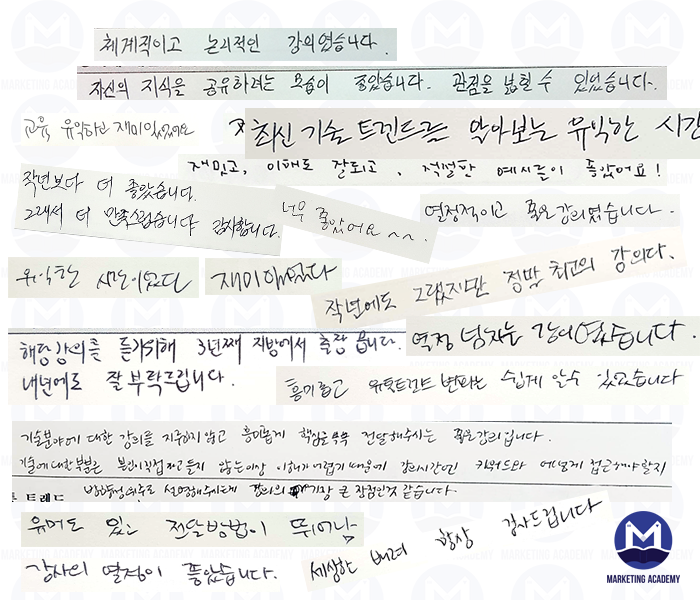 체계적이고 논리적인 강의였습니다.
자신의 지식을 공유하려는 모습이 좋았습니다. 관점을 넓힐 수 있었습니다.
교육, 유익하고 재미있었어요
최신 기술 트렌드를 알아보는 유익한 시간
재밌고, 이해도 잘되고, 적절한 예시들이 좋았어요!
작년보다 더 좋았습니다.
그래서 더 만족스럽습니다 감사합니다.
너무 좋았어요~~.
열정적이고 좋은강의였습니다.
유익한 시간이였다
재미있었다
작년에도 그랬지만 정말 최고의 강의다.
열정 넘치는 강의였습니다.
해당강의를 듣기위해 3년째 지방에서 출장 옵니다.
내년에도 잘 부탁드립니다.
흥미롭고 유통트렌드 변화를 쉽게 알수 있었습니다
기술분야에 대한 강의를 지루하지 않고 흥미롭게 핵심을 쏙쏙 전달해주시는 좋은강의입니다.
기술에 대한 부분은 본인이 직접 찾고 듣지 않는이상 이해가 어렵기 때문에 강의시간에 키워드와 어떻게 접근해야 할지
방향성 위주로 설명해주시는게 강의의 가장 큰 장점인것 같습니다.
트렌드
유머도 있는 전달방법이 뛰어남
강사의 열정이 좋았습니다.
세심한 배려 항상 감사드립니다
MARKETING ACADEMY